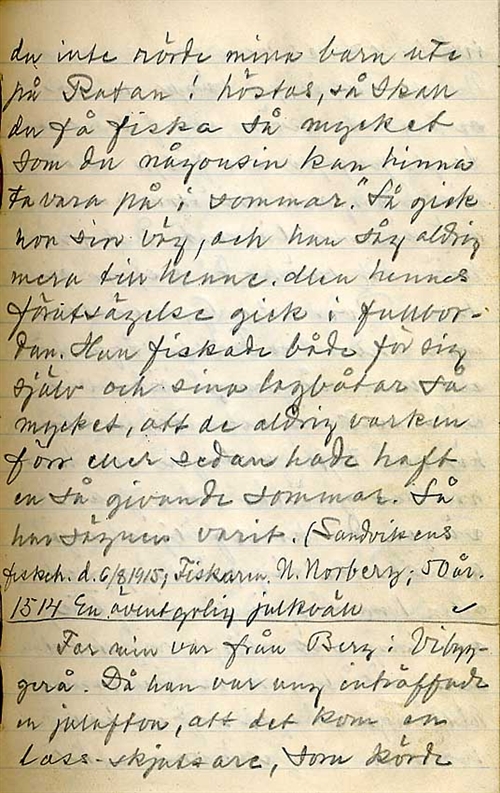 du inte rörde mina barn ute
på Ratan i höstas, så skall
du få fiska så mycket
som du någonsin kan hinna
ta vara på i sommar." Så gick
hon sin väg, och han såg aldrig
mera till henne. Men hennes
förutsägelse gick i fullbor-
dan. Han fiskade både för sig
själv och sina lagbåtar så
mycket, att de aldrig varken
förr eller sedan hade haft
en så givande sommar. Så
har sägnen varit. (Sandvikens
fiskeh. d. 6/8 1915; Fiskaren N. Norberg; 50 år.
1514 En äventyrlig julkväll ✓
Far min var från Berg i Vibyg-
gerå. Då han var ung inträffade
en julafton, att det kom en
lass-skjutsare, som körde